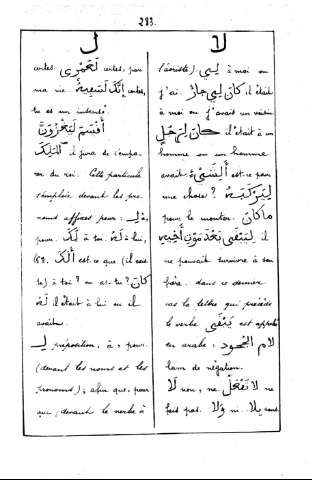 283.
ل
certes. لَعَمْرِي certes, par
ma vie إِنَّكَ لَسَفِيهٌ certes,
tu es un insensé.
أَقْسَمَ
المَلِكَ il jura de s'empa-
rer du roi. Cette particule
s'emploie devant les pro-
noms affixes pour: لِ
pour. لَكَ à toi. لَهُ à lui,
أَلَكَ est-ce que (il exis-
te) à toi? = as-tu? كَانَ
لَهُ il était à lui = il
avait.
لِ préposition, à, pour.
(devant les noms et les
pronoms); afin que, pour
que (devant le verbe à
لا
l'aoriste). لِي à moi =
j'ai. كَانَ لِي جَارٌ il était
à moi = j'avais un voisin
كَانَ لِرَجُلٍ il était à un
homme = un homme
avait. أَلِشَيْءٍ est-ce pour
une chose? لِيَرْكَبَهُ
pour le monter. مَا كَانَ
لِيَبْقَى بَعْدَ مَوْتِ أَخِيهِ il
ne pouvait survivre à son
frère. dans ce dernier
cas la lettre qui précède
le verbe يَبْقَى est appelée
en arabe: لام الجحود
lam de négation.
لَا non, ne. لَا تَفْعَلْ ne
fais pas. وَلَا ni. بِلَا sans